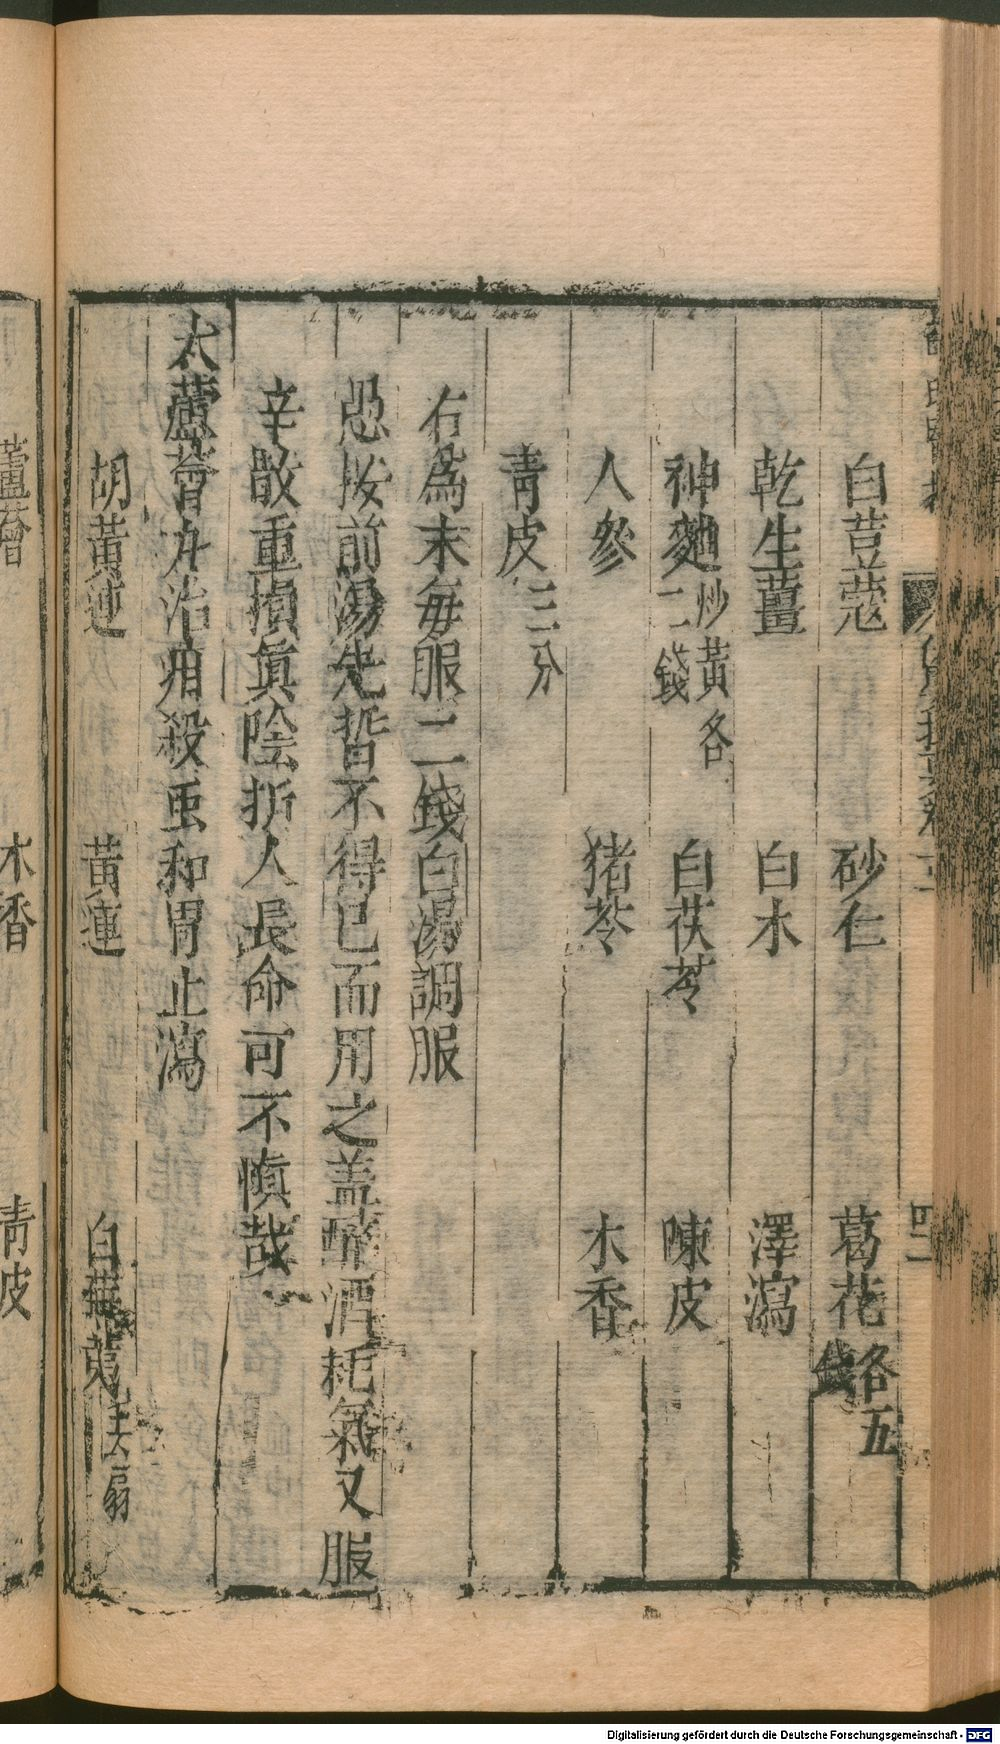 白荳蔻 砂仁 葛花各五錢
乾生薑 白朮 澤瀉
神麯炒黃各二錢 白茯苓 陳皮
人參 猪苓 木香
靑皮三分
右爲末每服二錢白湯調服
愚按前湯先哲不得已而用之盖醉酒耗氣又服
辛散重損眞陰折人長命可不愼哉
大蘆薈丸治疳殺虫和胃止瀉
胡黃連 黃連 白蕪荑去扇
蘆薈 木香 靑皮
四二
Digitalisierung gefördert durch die Deutsche Forschungsgemeinschaft - DFG